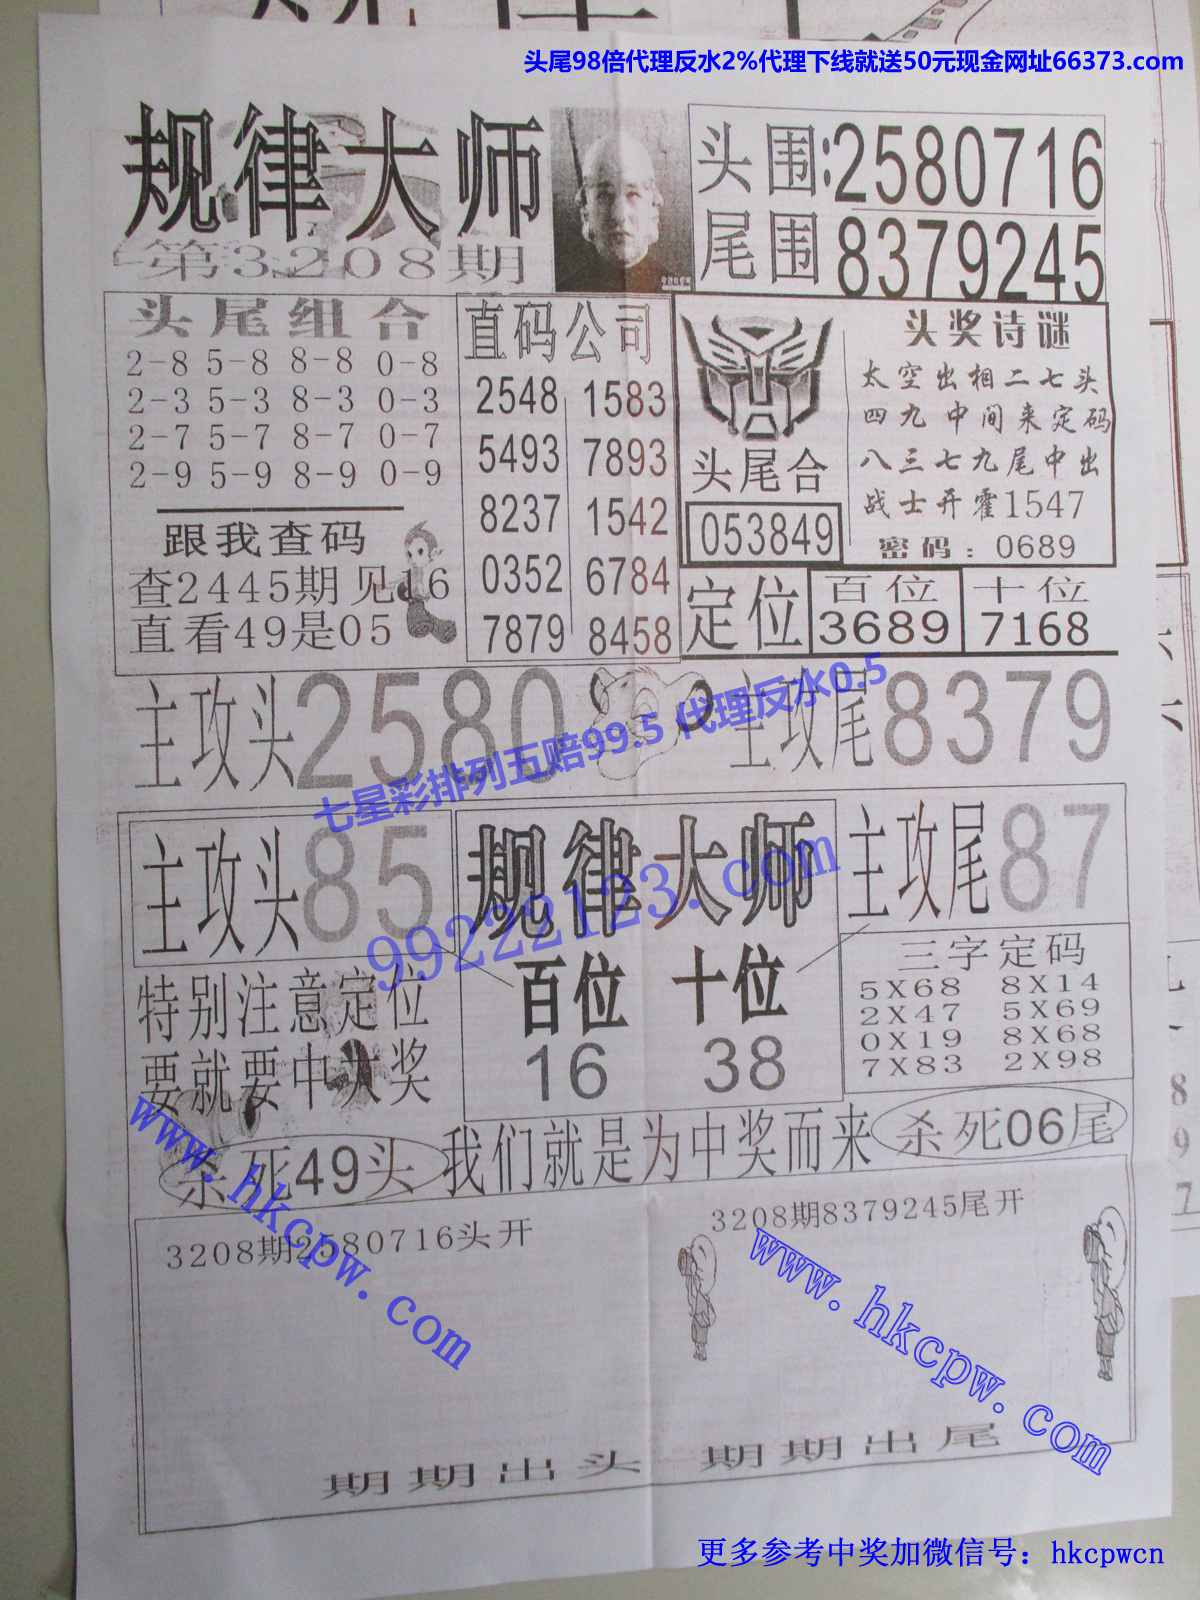 头尾98倍代理反水2%代理下线就送50元现金网址66373.com
规律大师
第3208期
头围:2580716
尾围 8379245
头尾组合
2-8 5-8 8-8 0-8
2-3 5-3 8-3 0-3
2-7 5-7 8-7 0-7
2-9 5-9 8-9 0-9
跟我查码
查2445期见16
直看49是05
直码公司
2548 1583
5493 7893
8237 1542
0352 6784
7879 8458
头尾合
053849
头奖诗谜
太空出相二七头
四九中间来定码
八三七九尾中出
战士开霍1547
密码:0689
定位
百位
3689
十位
7168
主攻头2580
主攻尾8379
七星彩排列五赔99.5 代理反水0.5
99222123.com
主攻头85
规律大师
主攻尾87
百位 十位
16 38
特别注意定位
要就要中大奖
三字定码
5X68 8X14
2X47 5X69
0X19 8X68
7X83 2X98
杀死49头
我们就是为中奖而来
杀死06尾
3208期2580716头开
3208期8379245尾开
www.hkcpw.com
www.hkcpw.com
期期出头 期期出尾
更多参考中奖加微信号：hkcpwcn